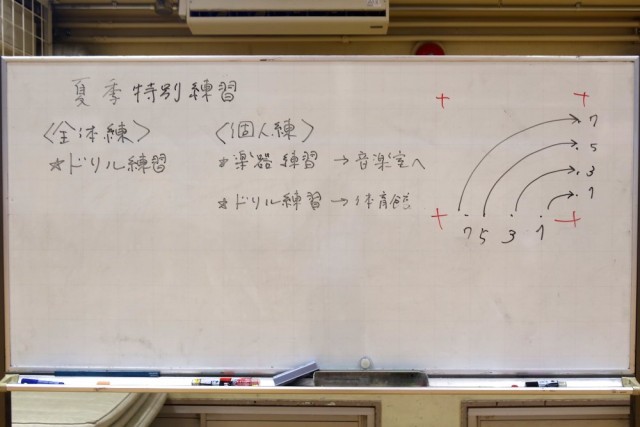 夏季特別練習
〈全体練〉
☆ドリル練習
〈個人練〉
☆楽器練習→音楽室へ
☆ドリル練習→体育館
7
5
3
1
7 5 3 1